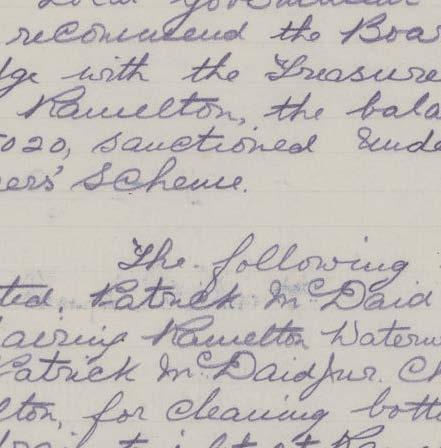 Local Government
recommend the Boar
dge with the Treasure
Ramelton, the bala
5020, sanctioned Unde
eers' Scheme.
The following
ted. Patrick McDaid
airing Ramelton Waterw
Patrick McDaid Jnr. Ch
lton, for cleaning bott